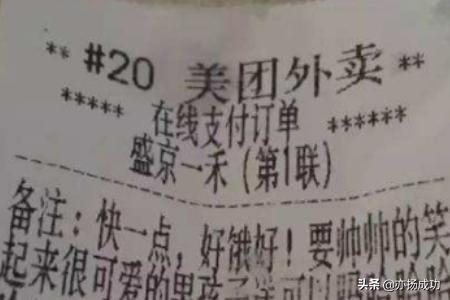 ** #20 美团外卖 **
***** 在线支付订单 ******
盛京一禾（第1联）
备注：快一点，好饿好！要帅帅的笑
起来很可爱的男孩子
头条 @亦扬成功